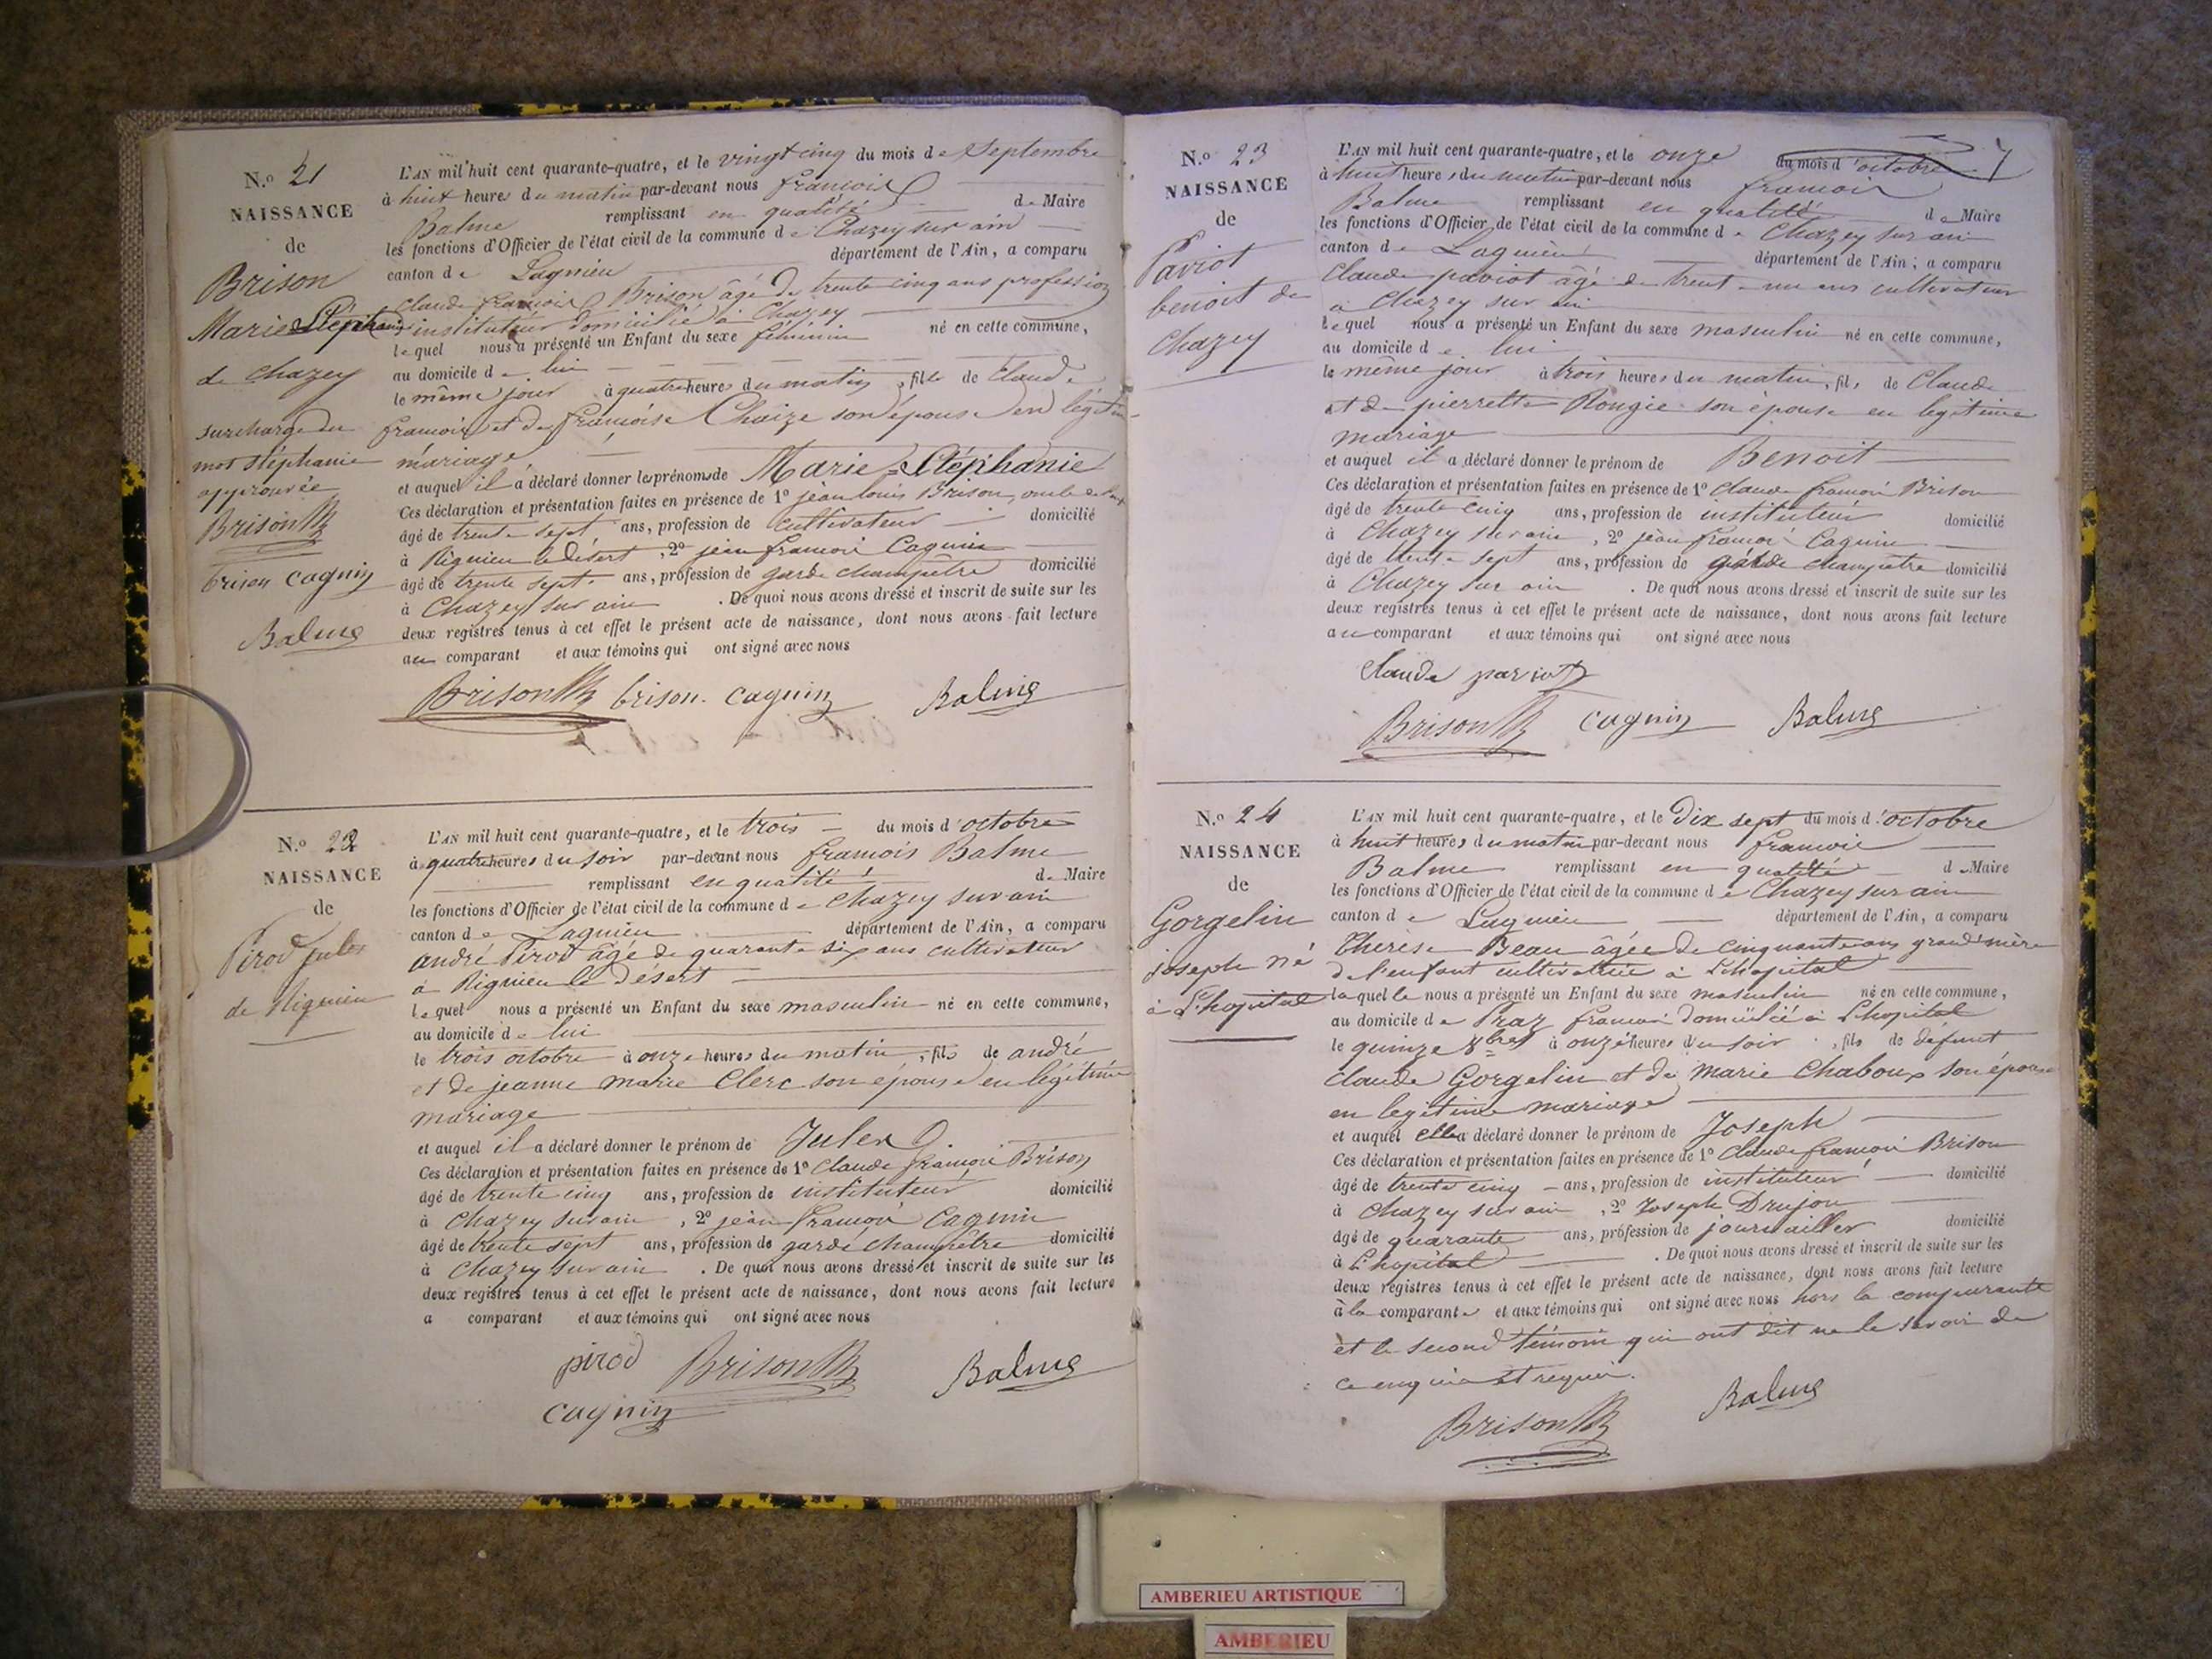 N.o 21
NAISSANCE
de
Brison
Marie Stéphanie
de Chazey
surcharge du
mot stéphanie
approuvée
Brison
brison cagnin
Balme
L'AN mil huit cent quarante-quatre, et le vingt cinq du mois de Septembre
à huit heures du matin par-devant nous francois
Balme remplissant en qualité de Maire
les fonctions d'Officier de l'état civil de la commune de Chazey sur ain
canton de Lagnieu département de l'Ain, a comparu
Claude francois Brison âgé de trente cinq ans profession
instituteur domicilié à Chazey
lequel nous a présenté un Enfant du sexe féminin né en cette commune,
au domicile de lui
le même jour à quatre heures du matin, fille de Claude
francois et de francoise Chaize son épouse en légitime
mariage
et auquel il a déclaré donner les prénoms de Marie=Stéphanie
Ces déclaration et présentation faites en présence de 1º jean louis Brison oncle de
âgé de trente sept ans, profession de cultivateur domicilié
à Rignieu le désert, 2º jean francois Cagnin
âgé de trente sept ans, profession de garde champêtre domicilié
à Chazey sur ain . De quoi nous avons dressé et inscrit de suite sur les
deux registres tenus à cet effet le présent acte de naissance, dont nous avons fait lecture
au comparant et aux témoins qui ont signé avec nous
Brison brison. cagnin Balme
N.o 22
NAISSANCE
de
Pirod jules
de Rignieu
L'AN mil huit cent quarante-quatre, et le trois du mois d'octobre
à quatre heures du soir par-devant nous francois Balme
remplissant en qualité de Maire
les fonctions d'Officier de l'état civil de la commune de Chazey sur ain
canton de Lagnieu département de l'Ain, a comparu
andré Pirod âgé de quarante six ans cultivateur
à Rignieu le désert
lequel nous a présenté un Enfant du sexe masculin né en cette commune,
au domicile de lui
le trois octobre à onze heures du matin, fils de andré
et de jeanne marie Clerc son épouse en légitime
mariage
et auquel il a déclaré donner le prénom de Jules
Ces déclaration et présentation faites en présence de 1º Claude francois Brison
âgé de trente cinq ans, profession de instituteur domicilié
à Chazey sur ain, 2º jean francois Cagnin
âgé de trente sept ans, profession de garde champêtre domicilié
à Chazey sur ain . De quoi nous avons dressé et inscrit de suite sur les
deux registres tenus à cet effet le présent acte de naissance, dont nous avons fait lecture
a comparant et aux témoins qui ont signé avec nous
pirod Brison Balme
cagnin
7
N.o 23
NAISSANCE
de
Paviot
benoit de
Chazey
L'AN mil huit cent quarante-quatre, et le onze du mois d'octobre
à huit heures du matin par-devant nous francois
Balme remplissant en qualité de Maire
les fonctions d'Officier de l'état civil de la commune de Chazey sur ain
canton de Lagnieu département de l'Ain, a comparu
Claude paviot âgé de trente un ans cultivateur
à Chazey sur ain
lequel nous a présenté un Enfant du sexe masculin né en cette commune,
au domicile de lui
le même jour à trois heures du matin, fils de Claude
et de pierrette Rongie son épouse en legitime
mariage
et auquel il a déclaré donner le prénom de Benoit
Ces déclaration et présentation faites en présence de 1º Claude francois Brison
âgé de trente cinq ans, profession de instituteur domicilié
à Chazey sur ain, 2º jean francois Cagnin
âgé de trente sept ans, profession de garde champetre domicilié
à Chazey sur ain . De quoi nous avons dressé et inscrit de suite sur les
deux registres tenus à cet effet le présent acte de naissance, dont nous avons fait lecture
au comparant et aux témoins qui ont signé avec nous
Claude paviot
Brison cagnin Balme
N.o 24
NAISSANCE
de
Gorgelin
joseph né
à L'hopital
L'AN mil huit cent quarante-quatre, et le Dix sept du mois d'octobre
à huit heures du matin par-devant nous francois
Balme remplissant en qualité de Maire
les fonctions d'Officier de l'état civil de la commune de Chazey sur ain
canton de Lagnieu département de l'Ain, a comparu
Thérèse Beau âgée de cinquante ans grand mère
de l'enfant cultivatrice à L'hopital
laquelle nous a présenté un Enfant du sexe masculin né en cette commune,
au domicile de Praz francois domicilié à L'hopital
le quinze 8bre à onze heures du soir, fils de défunt
Claude Gorgelin et de Marie Chaboux son épouse
en legitime mariage
et auquel elle a déclaré donner le prénom de Joseph
Ces déclaration et présentation faites en présence de 1º Claude francois Brison
âgé de trente cinq ans, profession de instituteur domicilié
à Chazey sur ain, 2º Joseph Drujon
âgé de quarante ans, profession de journailler domicilié
à L'hopital . De quoi nous avons dressé et inscrit de suite sur les
deux registres tenus à cet effet le présent acte de naissance, dont nous avons fait lecture
à la comparante et aux témoins qui ont signé avec nous hors la comparante
et le second témoin qui ont dit ne le savoir de
ce enquis et requis.
Brison Balme
AMBERIEU ARTISTIQUE
AMBERIEU